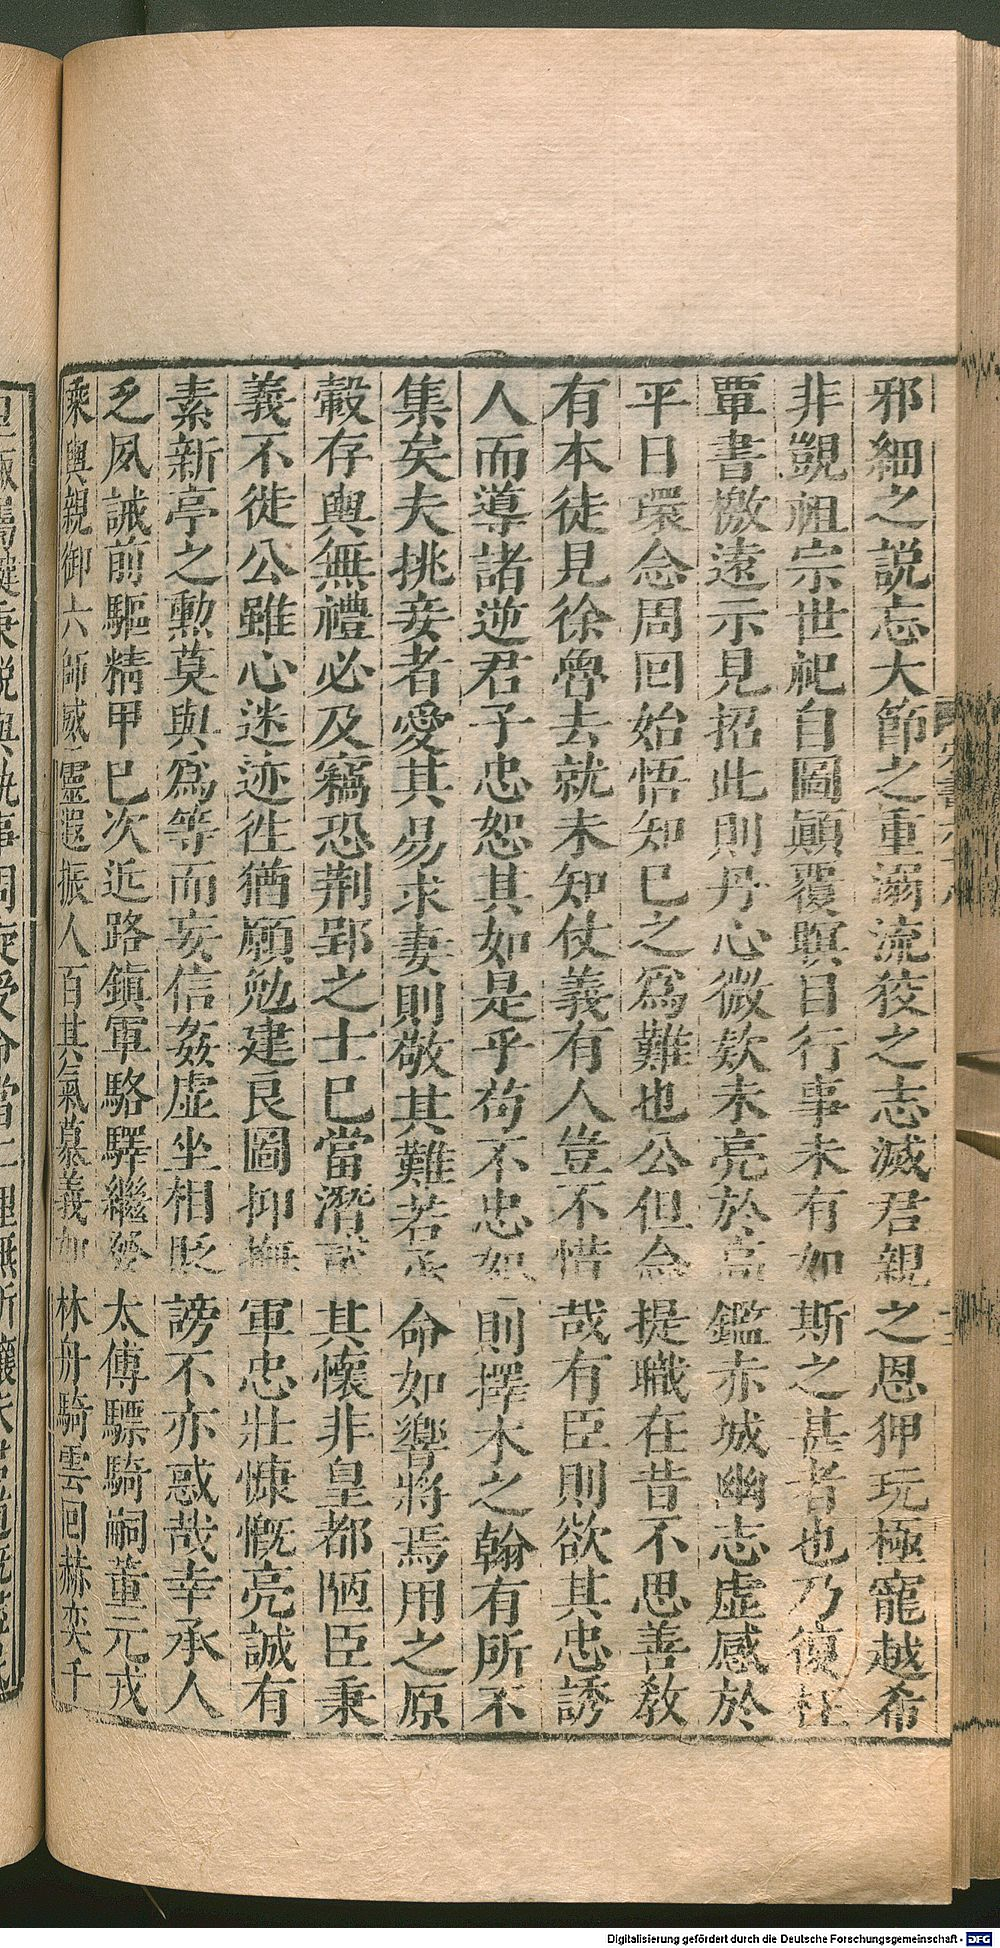 邪細之説忘大節之重溺流狡之志滅君親之恩狎玩極寵越希
非覬祖宗世祀自圖顚覆瞑目行事未有如斯之甚者也乃復枉
覃書檄遠示見招此則丹心微欵未亮於高鑑赤城幽志虚感於
平日環念周回始悟知巳之爲難也公但念提職在昔不思善敎
有本徒見徐魯去就未知仗義有人豈不惜哉有臣則欲其忠誘
人而導諸逆君子忠恕其如是乎茍不忠恕則擇木之翰有所不
集矣夫挑妾者愛其易求妻則敬其難若承命如響將焉用之原
轂存輿無禮必及竊恐荆郢之士巳當潛貳其懷非皇都陋臣秉
義不徙公雖心迷迹徃猶願勉建良圖抑撫軍忠壯慷慨亮誠有
素新亭之勲莫與爲等而妄信姦虚坐相貶謗不亦惑哉幸承人
乏夙誡前驅精甲巳次近路鎭軍駱驛繼發太傅驃騎嗣董元戎
乘輿親御六師威靈遐振人百其氣慕義如林舟騎雲回赫奕千
Digitalisierung gefördert durch die Deutsche Forschungsgemeinschaft - DFG